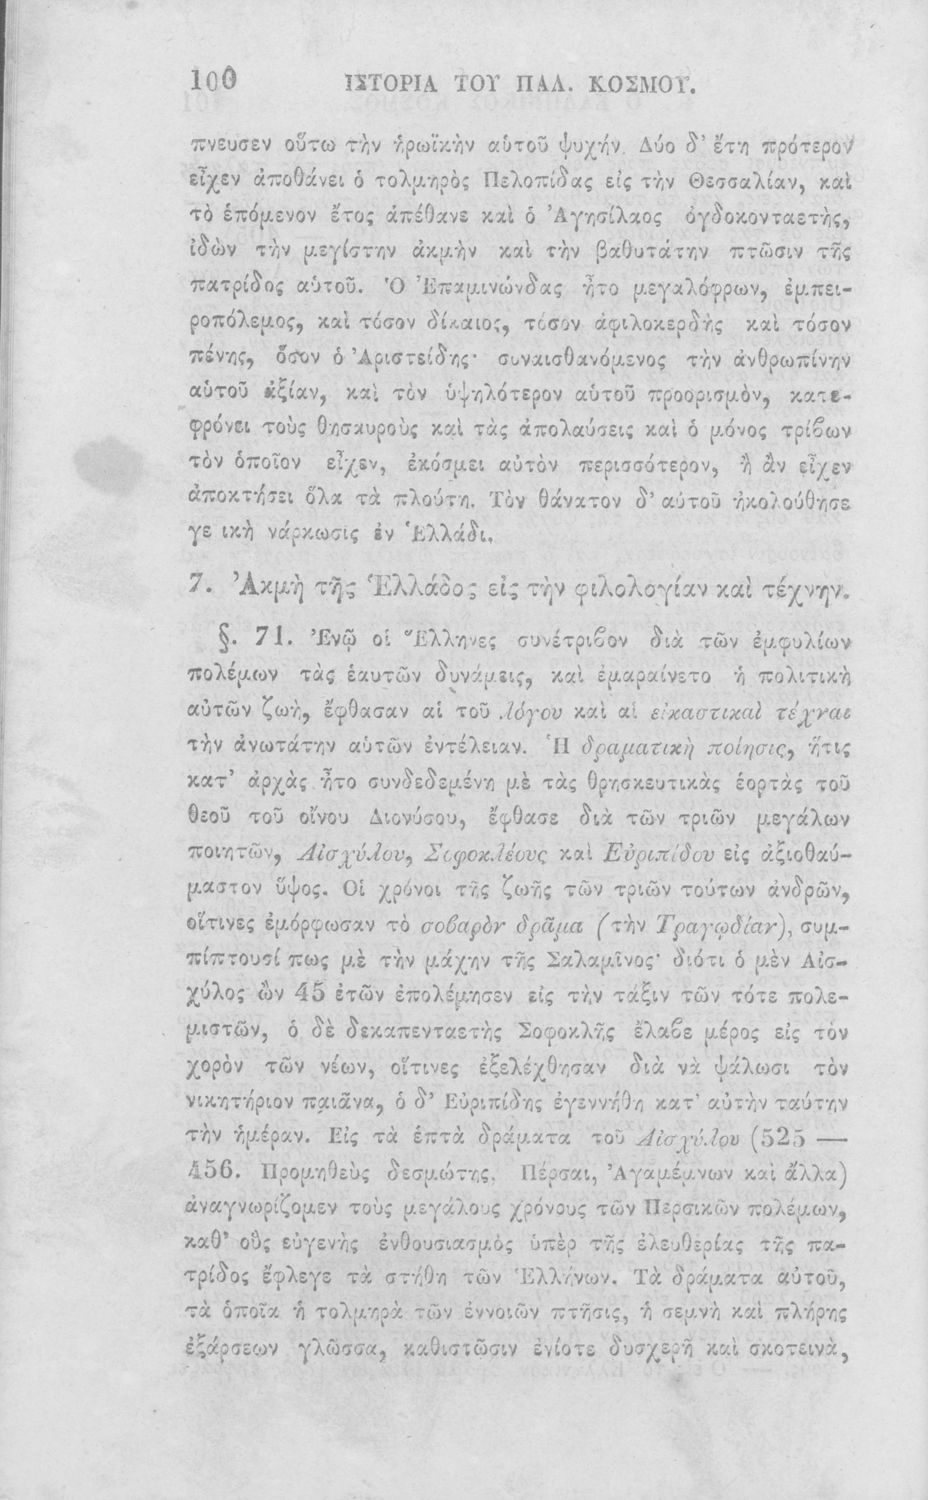 100 ΙΣΤΟΡΙΑ ΤΟΥ ΠΑΛ. ΚΟΣΜΟΥ.
πνευσεν οὕτω τὴν ἡρωϊκὴν αὐτοῦ ψυχήν. Δύο δ' ἔτη πρότερον
εἶχεν ἀποθάνει ὁ τολμηρὸς Πελοπίδας εἰς τὴν Θεσσαλίαν, καὶ
τὸ ἑπόμενον ἔτος ἀπέθανε καὶ ὁ Ἀγησίλαος ὀγδοκονταετὴς,
ἰδὼν τὴν μεγίστην ἀκμὴν καὶ τὴν βαθυτάτην πτῶσιν τῆς
πατρίδος αὑτοῦ. Ὁ Ἐπαμινώνδας ἦτο μεγαλόφρων, ἐμπει-
ροπόλεμος, καὶ τόσον δίκαιος, τόσον ἀφιλοκερδὴς καὶ τόσον
πένης, ὅσον ὁ Ἀριστείδης· συναισθανόμενος τὴν ἀνθρωπίνην
αὑτοῦ ἀξίαν, καὶ τὸν ὑψηλότερον αὑτοῦ προορισμὸν, κατε-
φρόνει τοὺς θησαυροὺς καὶ τὰς ἀπολαύσεις καὶ ὁ μόνος τρίβων
τὸν ὁποῖον εἶχεν, ἐκόσμει αὐτὸν περισσότερον, ἢ ἂν εἶχεν
ἀποκτήσει ὅλα τὰ πλούτη. Τὸν θάνατον δ' αὐτοῦ ἠκολούθησε
γε ικὴ νάρκωσις ἐν Ἑλλάδι.
7. Ἀκμὴ τῆς Ἑλλάδος εἰς τὴν φιλολογίαν καὶ τέχνην.
§. 71. Ἐνῷ οἱ Ἕλληνες συνέτριβον διὰ τῶν ἐμφυλίων
πολέμων τὰς ἑαυτῶν δυνάμεις, καὶ ἐμαραίνετο ἡ πολιτικὴ
αὐτῶν ζωὴ, ἔφθασαν αἱ τοῦ λόγου καὶ αἱ εἰκαστικαὶ τέχναι
τὴν ἀνωτάτην αὑτῶν ἐντέλειαν. Ἡ δραματικὴ ποίησις, ἥτις
κατ' ἀρχὰς ἦτο συνδεδεμένη μὲ τὰς θρησκευτικὰς ἑορτὰς τοῦ
θεοῦ τοῦ οἴνου Διονύσου, ἔφθασε διὰ τῶν τριῶν μεγάλων
ποιητῶν, Αἰσχύλου, Σοφοκλέους καὶ Εὐριπίδου εἰς ἀξιοθαύ-
μαστον ὕψος. Οἱ χρόνοι τῆς ζωῆς τῶν τριῶν τούτων ἀνδρῶν,
οἵτινες ἐμόρφωσαν τὸ σοβαρὸν δρᾶμα (τὴν Τραγῳδίαν), συμ-
πίπτουσί πως μὲ τὴν μάχην τῆς Σαλαμῖνος· διότι ὁ μὲν Αἰσ-
χύλος ὢν 45 ἐτῶν ἐπολέμησεν εἰς τὴν τάξιν τῶν τότε πολε-
μιστῶν, ὁ δὲ δεκαπενταετὴς Σοφοκλῆς ἔλαβε μέρος εἰς τὸν
χορὸν τῶν νέων, οἵτινες ἐξελέχθησαν διὰ νὰ ψάλωσι τὸν
νικητήριον παιᾶνα, ὁ δ' Εὐριπίδης ἐγεννήθη κατ' αὐτὴν ταύτην
τὴν ἡμέραν. Εἰς τὰ ἑπτὰ δράματα τοῦ Αἰσχύλου (525 —
456. Προμηθεὺς δεσμώτης, Πέρσαι, Ἀγαμέμνων καὶ ἄλλα)
ἀναγνωρίζομεν τοὺς μεγάλους χρόνους τῶν Περσικῶν πολέμων,
καθ' οὓς εὐγενὴς ἐνθουσιασμὸς ὑπὲρ τῆς ἐλευθερίας τῆς πα-
τρίδος ἔφλεγε τὰ στήθη τῶν Ἑλλήνων. Τὰ δράματα αὐτοῦ,
τὰ ὁποῖα ἡ τολμηρὰ τῶν ἐννοιῶν πτῆσις, ἡ σεμνὴ καὶ πλήρης
ἐξάρσεων γλῶσσα, καθιστῶσιν ἐνίοτε δυσχερῆ καὶ σκοτεινὰ,